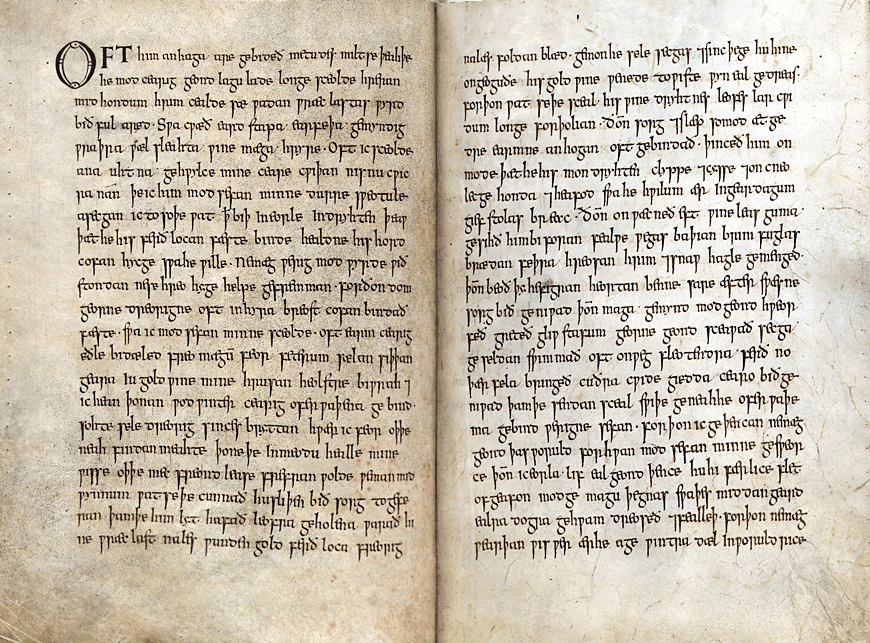 OFT him anhaga are gebideð metudes miltse þeahþe
he mod cearig geond lagu lade longe sceolde hreran
mid hondum hrim cealde sæ ƿadan ƿræc lastas ƿyrd
bið ful aræd · Sƿa cƿæð eard stapa · earfeþa · gemyndig
ƿraþra ƿæl sleahta · ƿine mæga · hryre · Oft ic sceolde
ana uhtna · gehƿylce mine ceare cƿiþan nis nu cƿic
ra nan þe ic him mod sefan minne durre sƿeotule
asecgan ic to soþe ƿat · ꝥ biþ in eorle indryhten þeaƿ
þæt he his ferð locan fæste binde healdne his hord
cofan hycge sƿa he ƿille · Ne mæg ƿerig mod ƿyrde ƿið
stondan ne se hreo hyge helpe gefremman · forðon dom
georne dreorigne oft in hyra breost cofan bindað
fæste · sƿa ic mod sefan minne sceolde · oft earm cearig
eðle bidæled freo mægū feor feterum sælan siþþan
geara iu gold ƿine mine hrusan heolstre biƿrah ⁊
ic hean þonan ƿod ƿinter cearig ofer ƿaþena ge bind ·
sohte sele dreorig sinces bryttan hƿær ic feor oþþe
neah findan meahte þone þe in meodu healle mine
ƿisse oþþe mec freond lease frefran ƿolde ƿeman mid
ƿynnum ƿat se þe cunnað hu sliþen bið sorg to gefe
ran þam þe him lyt hafað leofra geholena ƿarað hi
ne ƿræc last nales ƿunden gold ferð loca freorig
nalæs foldan blæd · gemon he sele secgas ⁊ sinc þege hu hine
on geoguðe his gold ƿine ƿenede to ƿiste ƿyn eal gedreas
forþon ƿat se þe sceal · his ƿine dryhtnes leofes lar cƿi
dum longe forþolian · ðon̄ sorg ⁊ slæp somod æt gæ
dre earmne anhogan oft gebindað · þinceð him on
mode þæt he his mon dryhten clyppe ⁊ cysse ⁊ on cneo
lecge honda ⁊ heafod sƿa he hƿilum ær in geardagum
gief stolas breac · ðon̄ onƿæcneð eft ƿine leas guma ·
gesihð him biforan fealƿe ƿegas baþian brim fuglas
brædan feþra hreosan hrim ⁊ snaƿ hagle gemenged ·
þon̄ beoð þy hefigran heortan benne sare æfter sƿæsne
sorg bið geniƿad þon̄ maga · gemynd mod geond hƿeor
feð greteð gliƿ stafum georne geond sceaƿað secga ·
geseldan sƿimmað oft on ƿeg fleotendra · ferð no
þær fela bringeð cuðra cƿide giedda cearo bið ge
niƿad þam þe sendan sceal sƿiþe geneahhe ofer ƿaþe
ma gebind ƿerigne sefan · forþon ic geþencan ne mæg
geond þas ƿoruld forhƿan mod sefan minne gesƿeor
ce þon̄ ic eorla · lif eal geond þence hu hi færlice flet
ofgeafon modge magu þegnas sƿa þes middangeard
ealra dogra gehƿam dreoseð ⁊ fealleþ · forþon ne mæg
ƿearþan ƿis ƿer ær he age ƿintra dæl in ƿoruld rice